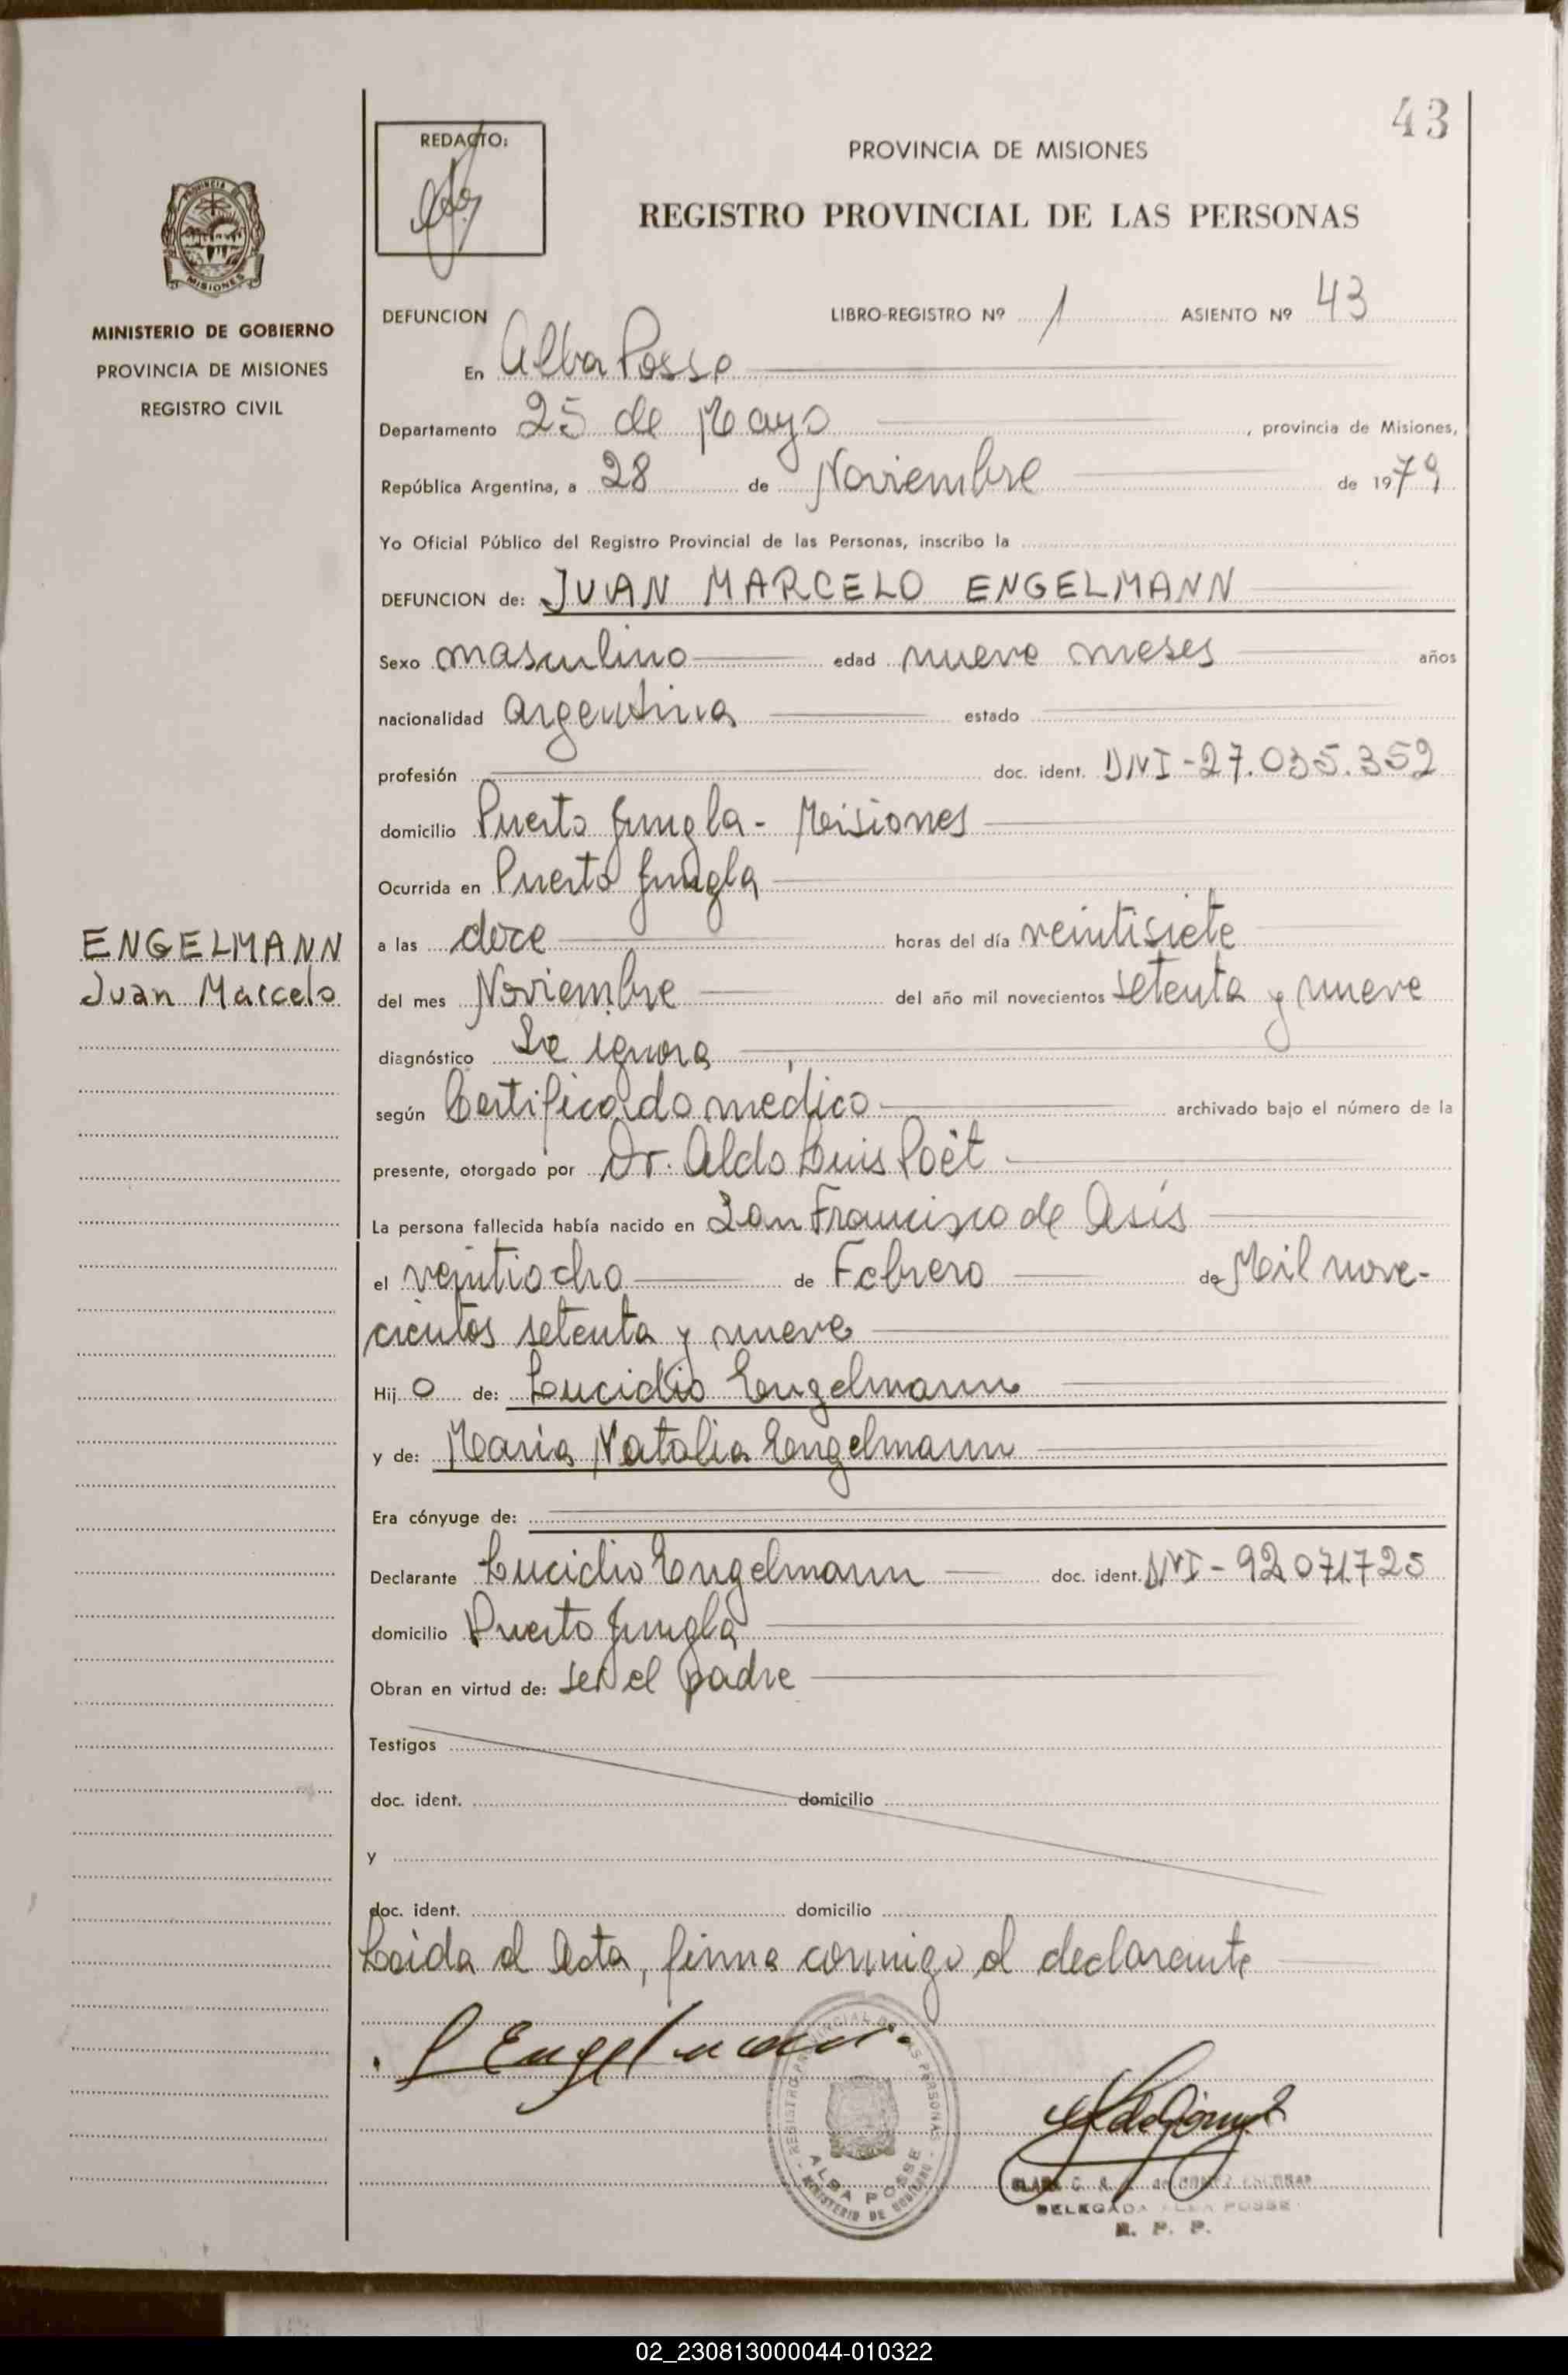 43
REDACTO:
PROVINCIA DE MISIONES
REGISTRO PROVINCIAL DE LAS PERSONAS
PROVINCIA DE
MISIONES
MINISTERIO DE GOBIERNO
PROVINCIA DE MISIONES
REGISTRO CIVIL
DEFUNCION LIBRO-REGISTRO Nº 1 ASIENTO Nº 43
En Alba Posse
Departamento 25 de Mayo, provincia de Misiones,
República Argentina, a 28 de Noviembre de 1979
Yo Oficial Público del Registro Provincial de las Personas, inscribo la
DEFUNCION de: JUAN MARCELO ENGELMANN
Sexo masculino edad nueve meses años
nacionalidad argentina estado
profesión doc. ident. DNI-27.035.352
domicilio Puerto Jungla - Misiones
Ocurrida en Puerto Jungla
ENGELMANN
Juan Marcelo
a las doce horas del día veintisiete
del mes Noviembre del año mil novecientos setenta y nueve
diagnóstico Se ignora
según Certificado médico archivado bajo el número de la
presente, otorgado por Dr. Aldo Luis Poët
La persona fallecida había nacido en San Francisco de Asís
el veintiocho de Febrero de Mil nove-
cientos setenta y nueve
Hijo de: Lucidio Engelmann
y de: Maria Natalia Engelmann
Era cónyuge de:
Declarante Lucidio Engelmann doc. ident. DNI-92071725
domicilio Puerto Jungla
Obran en virtud de: ser el padre
Testigos
doc. ident. domicilio
y
doc. ident. domicilio
Leida el Acta, firma conmigo el declarante
L Engelmann
REGISTRO PROVINCIAL DE LAS PERSONAS
ALBA POSSE
MINISTERIO DE GOBIERNO
de GOMEZ ESCOBAR
DELEGADA ALBA POSSE
R. P. P.
02_230813000044-010322